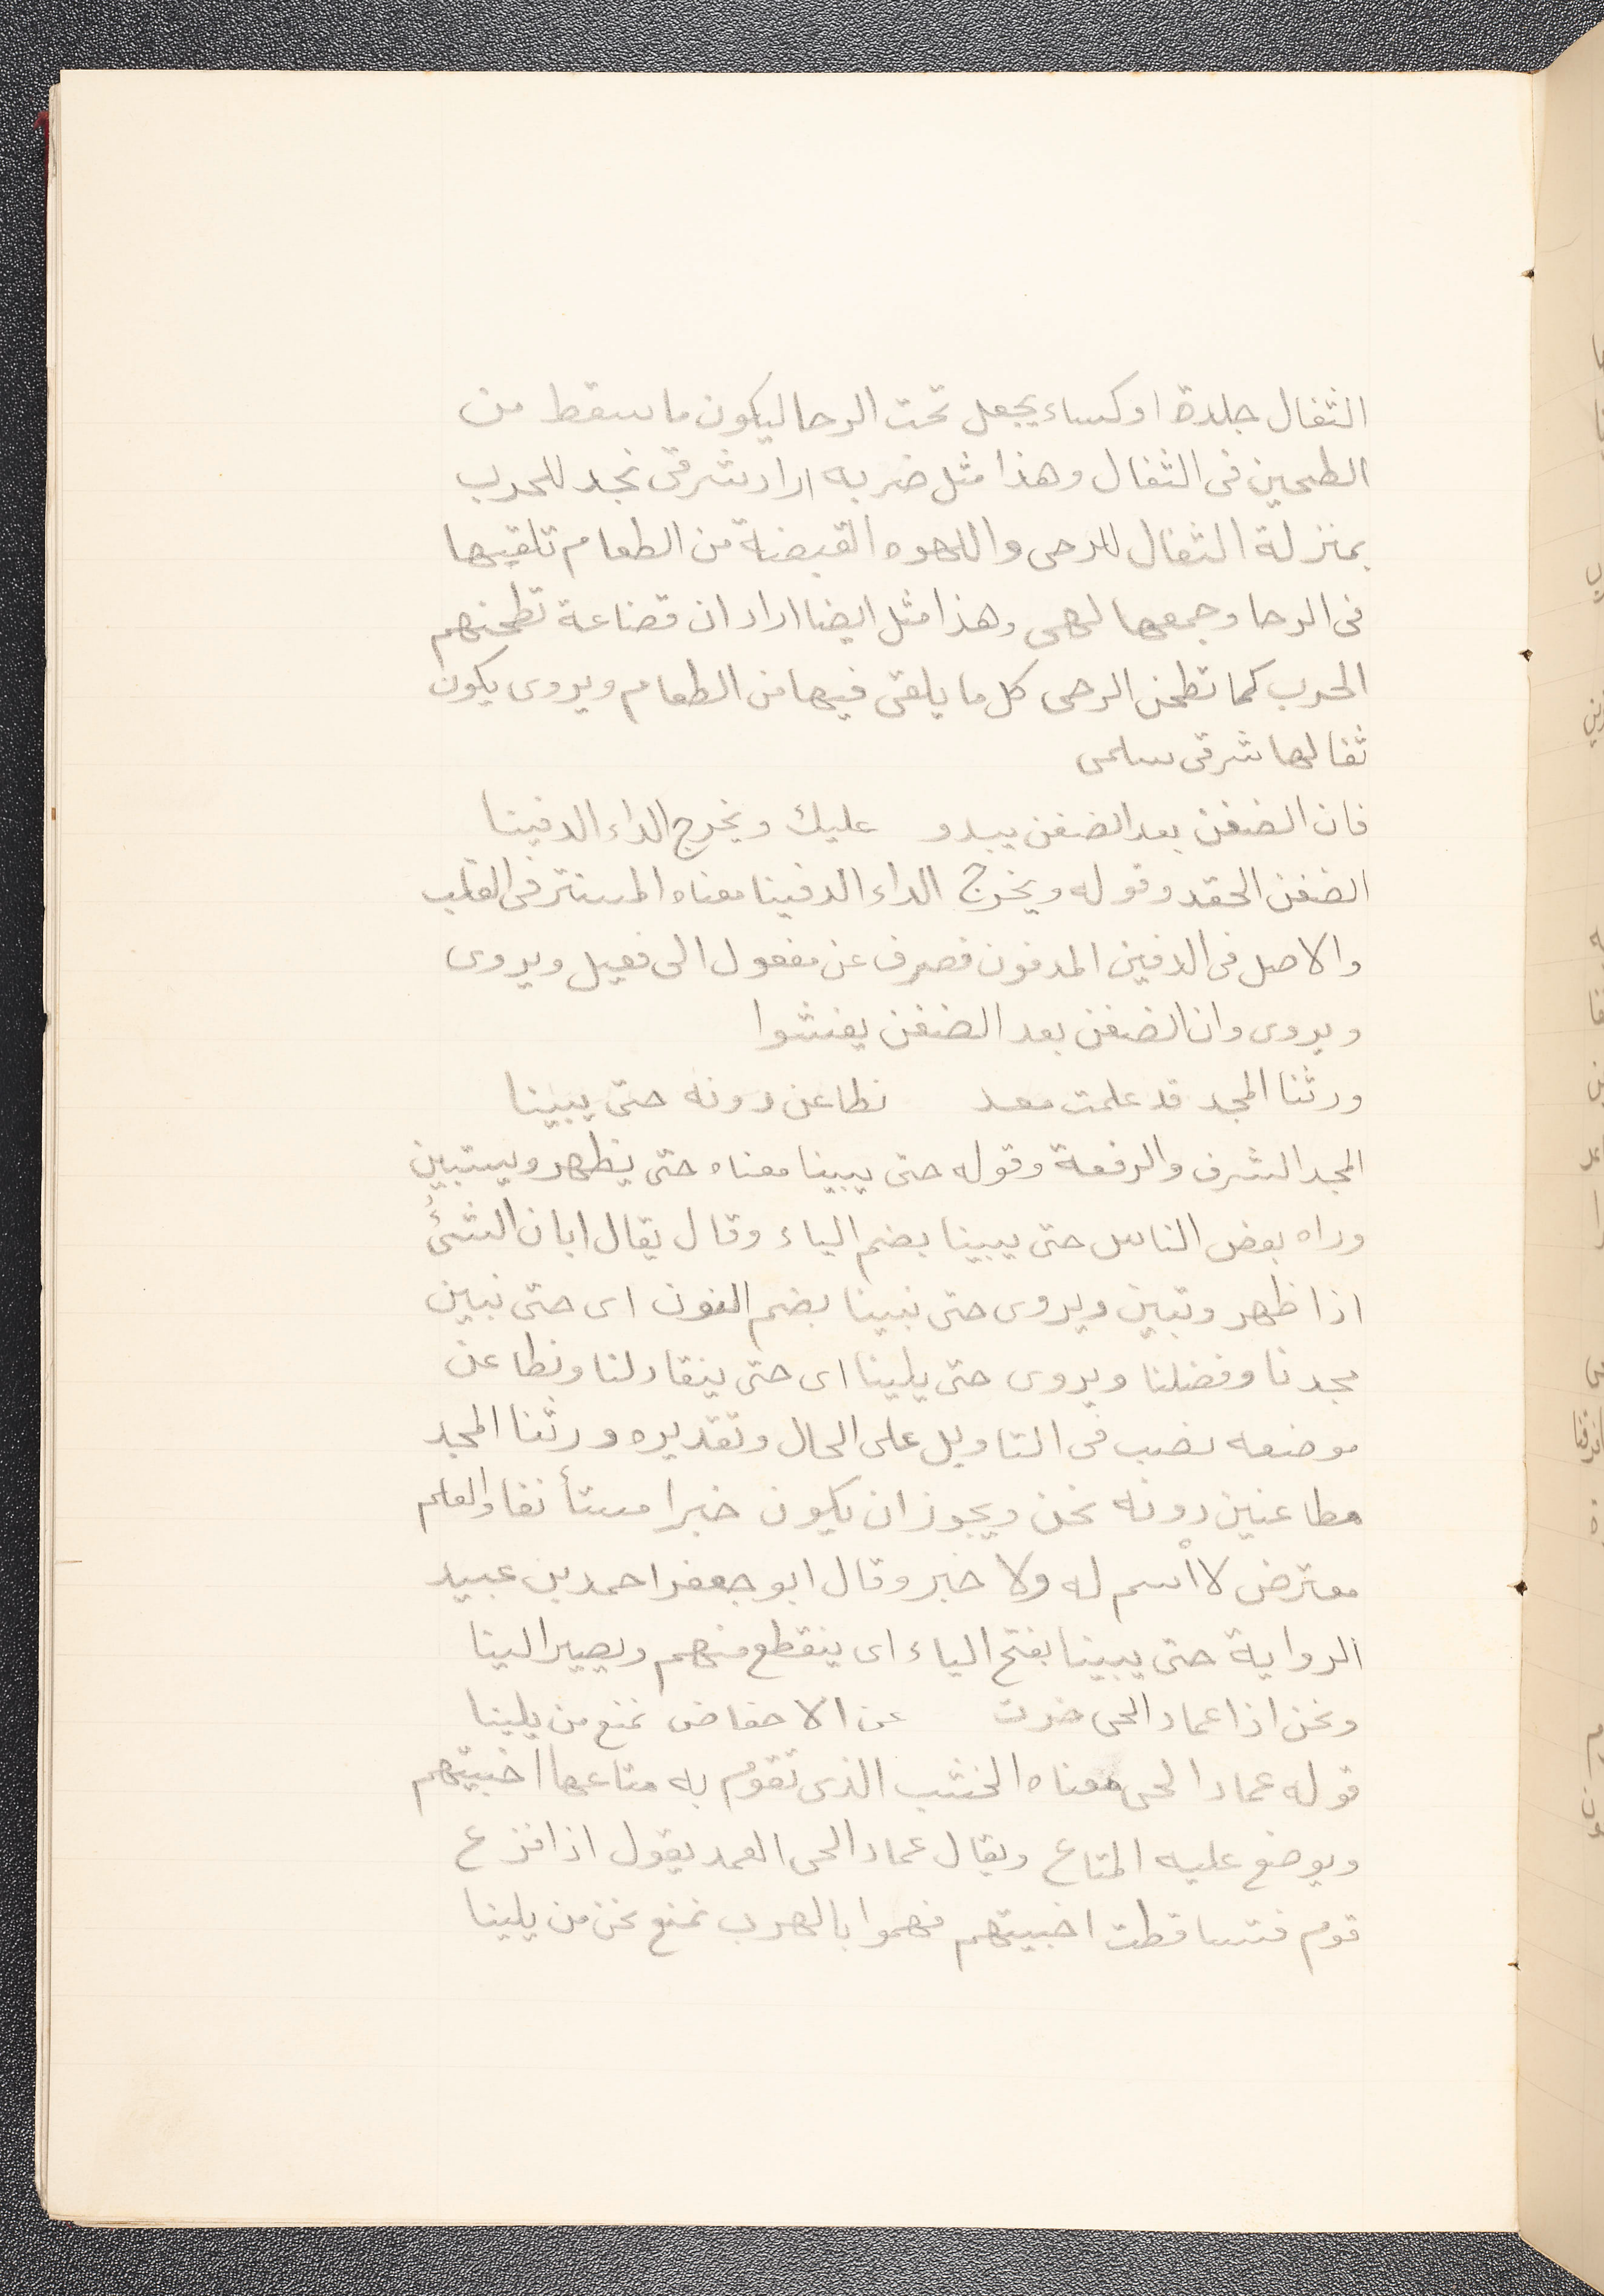 الثفال جلدة او كساء يجعل تحت الرحا ليكون ما سقط من
الطحين فى الثفال وهذا مثل ضربه اراد شرقى نجد للحرب
بمنزلة الثفال للرحى واللهوه القبضة من الطعام تلقيها
فى الرحا وجمعها لهى وهذا مثل ايضا اراد ان قضاعة تطحنهم
الحرب كما تطحن الرحى كل ما يلقى فيها من الطعام ويروى يكون
ثفالها شرقى سلمى
فان الضغن بعد الضغن يبدو عليك ويخرج الداء الدفينا
الضغن الحقد وقوله ويخرج الداء الدفينا معناه المستتر فى القلب
والاصل فى الدفين المدفون فصرف عن مفعول الى فعيل ويروى
ويروى وان الضغن بعد الضغن يفشوا
ورثنا المجد قد علمت معد نطاعن دونه حتى يبينا
المجد الشرف والرفعة وقوله حتى يبينا معناه حتى يظهر ويستبين
وراه بعض الناس حتى يبينا بضم الياء وقال يقال ابان الشئ
اذا ظهر وتبين ويروى حتى نبينا بضم النون اى حتى نبين
مجدنا وفضلنا ويروى حتى يلينا اى حتى ينقاد لنا ونطاعن
موضعه نصب فى التاويل على الحال وتقديره ورثنا المجد
مطاعنين دونه نحن ويجوز ان يكون خبرا مستأنفا والعلم
معترض لا اسم له ولا خبر وقال ابو جعفر احمد بن عبيد
الرواية حتى يبينا بفتح الياء اى ينقطع منهم ويصير الينا
ونحن اذا عماد الحى خرت عن الاحفاض نمنع من يلينا
قوله عماد الحى معناه الخشب الذى تقوم به متاعها اخبيتهم
ويوضع عليه المتاع ويقال عماد الحى العمد يقول اذا فزع
قوم فتساقطت اخبيتهم فهموا بالهرب نمنع نحن من يلينا